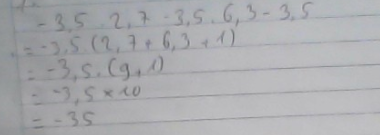 -3,5 2,7 -3,5. 6,3 - 3,5
= -3,5.(2,7 + 6,3 + 1)
= -3,5. (9 + 1)
= -3,5 × 10
= -35